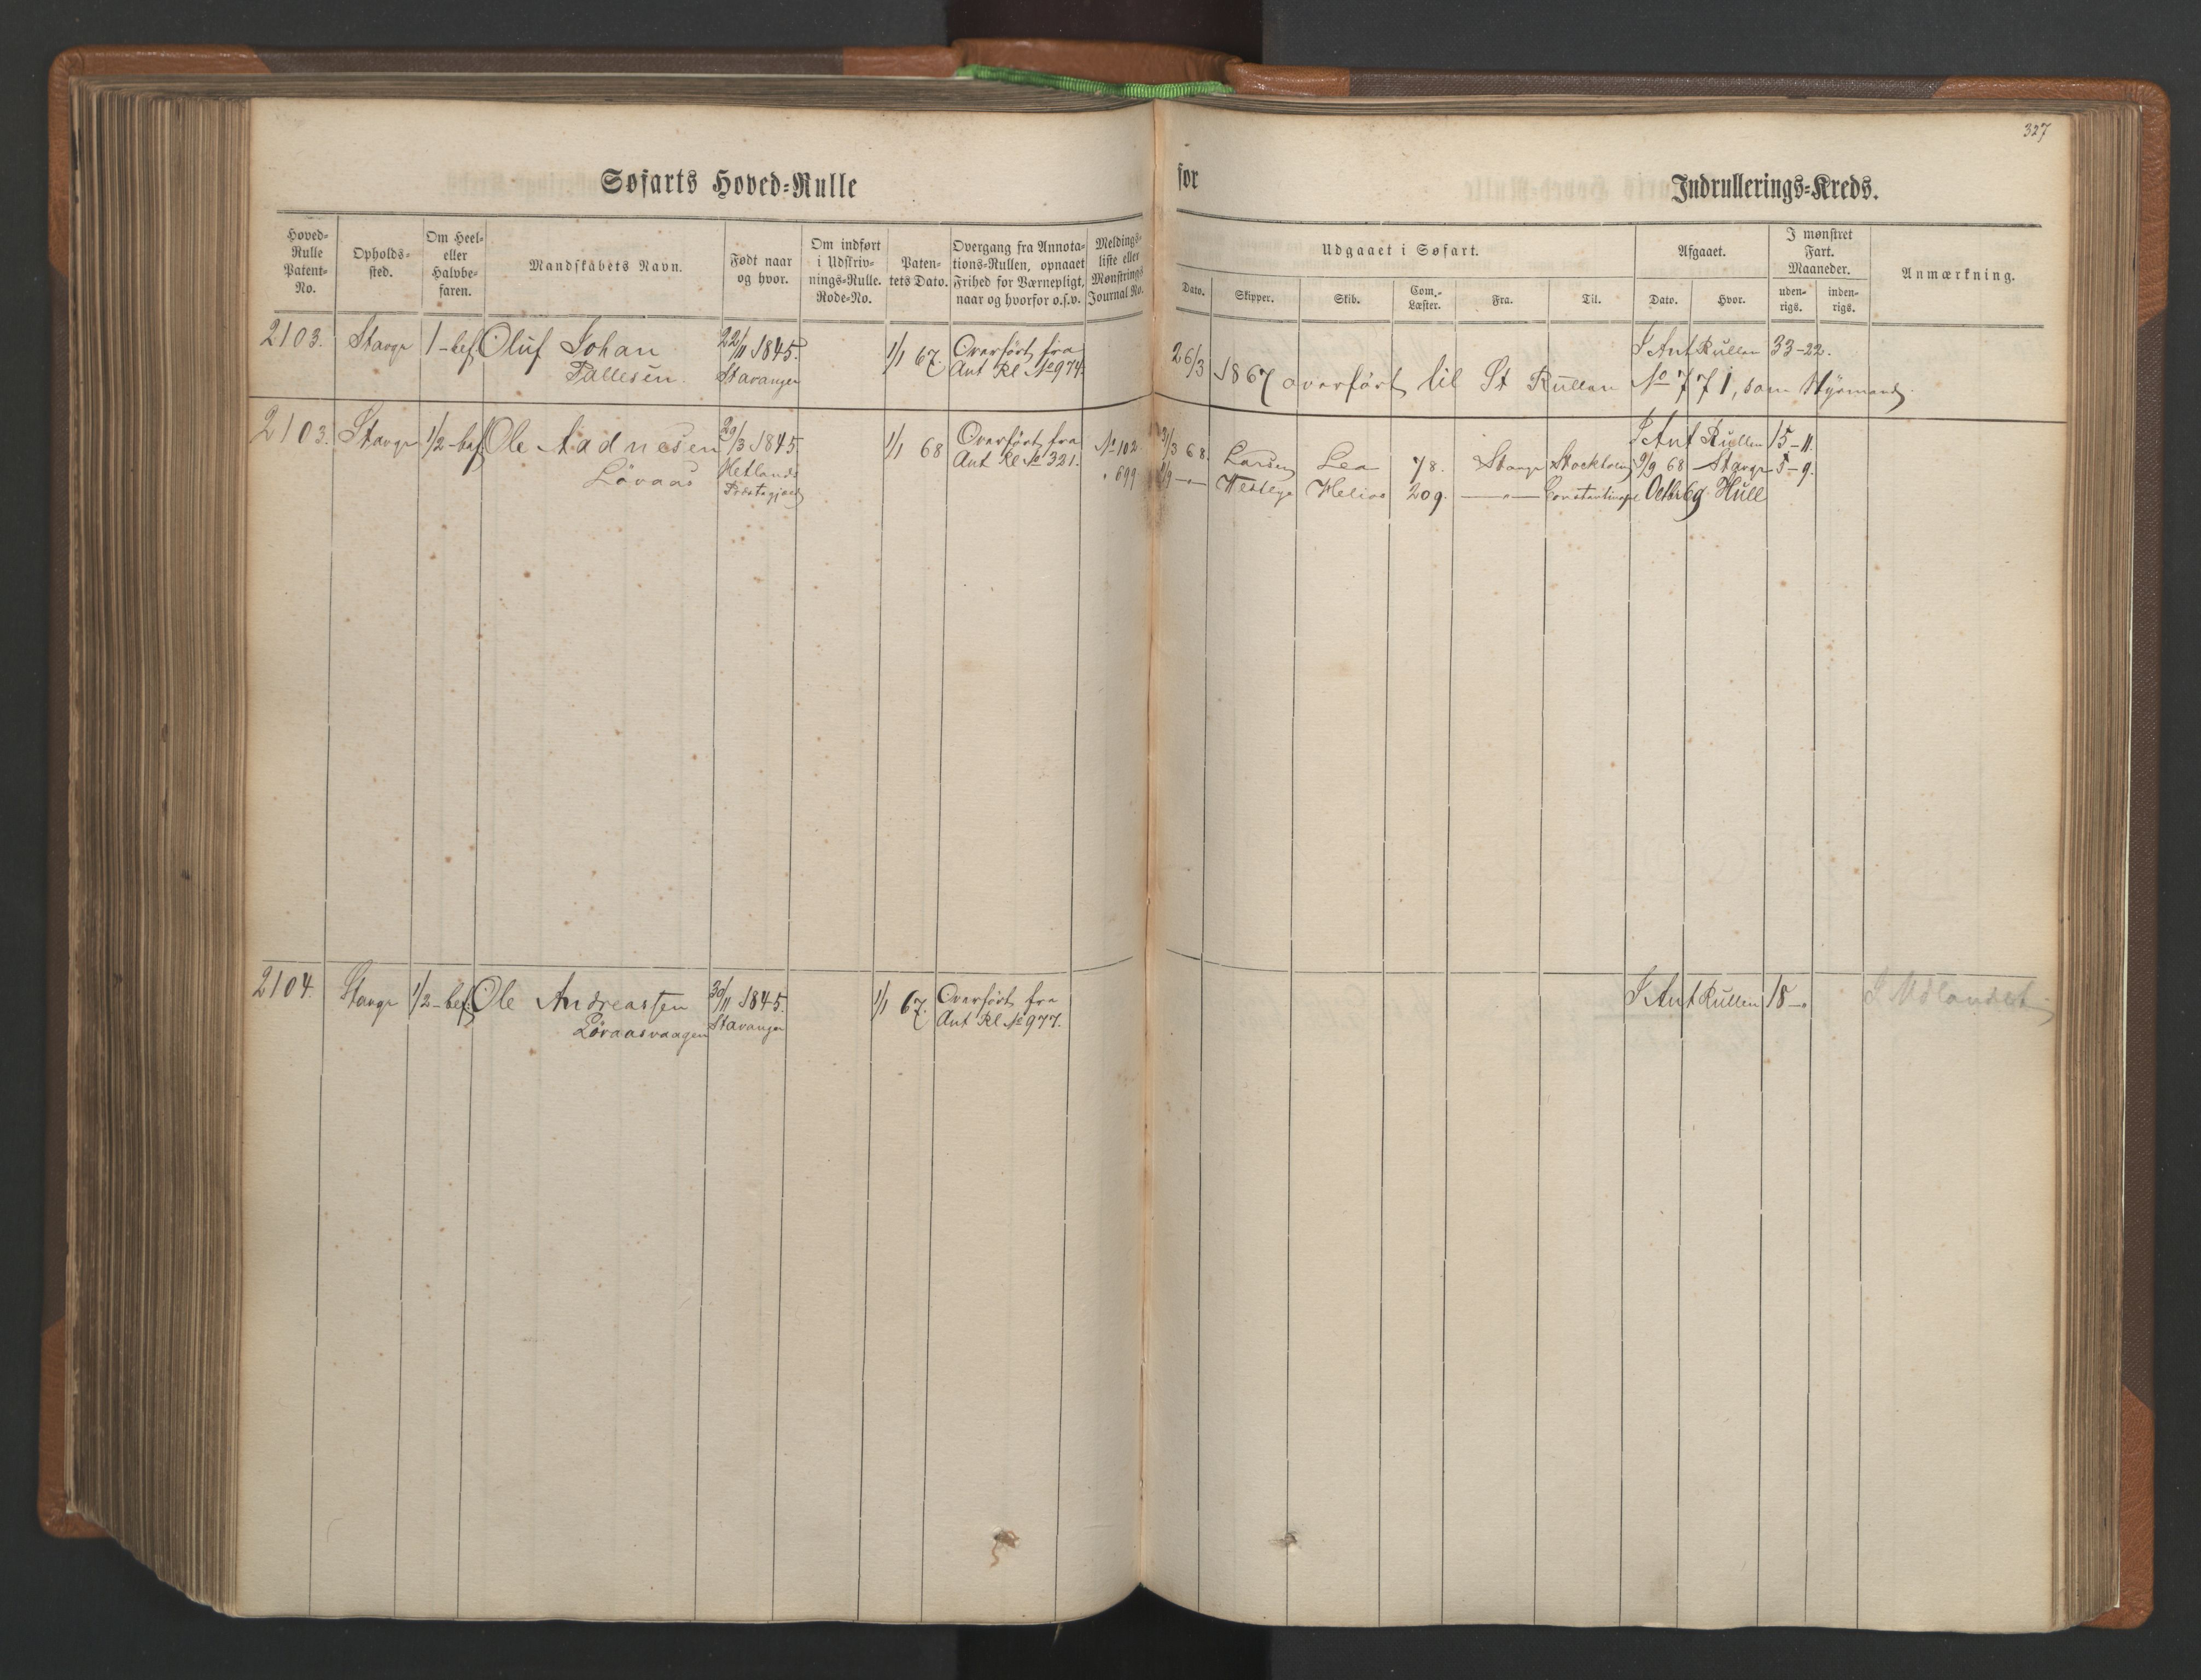 327
Søfarts Hoved-Rulle for Indrullerings-Kreds.
Hoved-Rulle Patent-No.
Opholds-sted.
Om Heel- eller Halvbe-faren.
Mandskabets Navn.
Født naar og hvor.
Om indført i Udskriv-nings-Rulle. Rode-No.
Paten-tets Dato.
Overgang fra Annota-tions-Rullen, opnaaet Frihed for Værnepligt, naar og hvorfor o.s.v.
Meldings-liste eller Mønstrings Journal No.
Udgaaet i Søfart.
Dato.
Skipper.
Skib.
Com.-Læster.
Fra.
Til.
Afgaaet.
Dato.
Hvor.
I mønstret Fart. Maaneder.
uden-rigs.
inden-rigs.
Anmærkning.
2103. Stavgr 1-bef Oluf Johan 22/11 1845. 1/1 67. Overført fra I Ant Rullen 33-22.
Tallesen. Stavanger Ant Rl No 974. 26/3 1867 overført til St Rullen No 771, som Styrmand.
2103. Stavgr 1/2-bef Ole Aadnesen 29/3 1845 1/1 68 Overført fra No 102. 31/3 68. Larsen Lea 78. Stavgr Stockholm I Ant Rullen 15-11.
Løvaas Hetlands Ant Rl No 321. 9/9 68 Stavgr 5-9.
Præstegjæld " 699 Helios 209. —"— Constantinopel Octbr 69 Hull
2104. Stavgr 1/2-bef. Ole Andreassen 30/11 1845. 1/1 67. Overført fra I Ant Rullen 18-" I Udlandet
Løvaasvaagen Stavanger Ant Rl No 977.